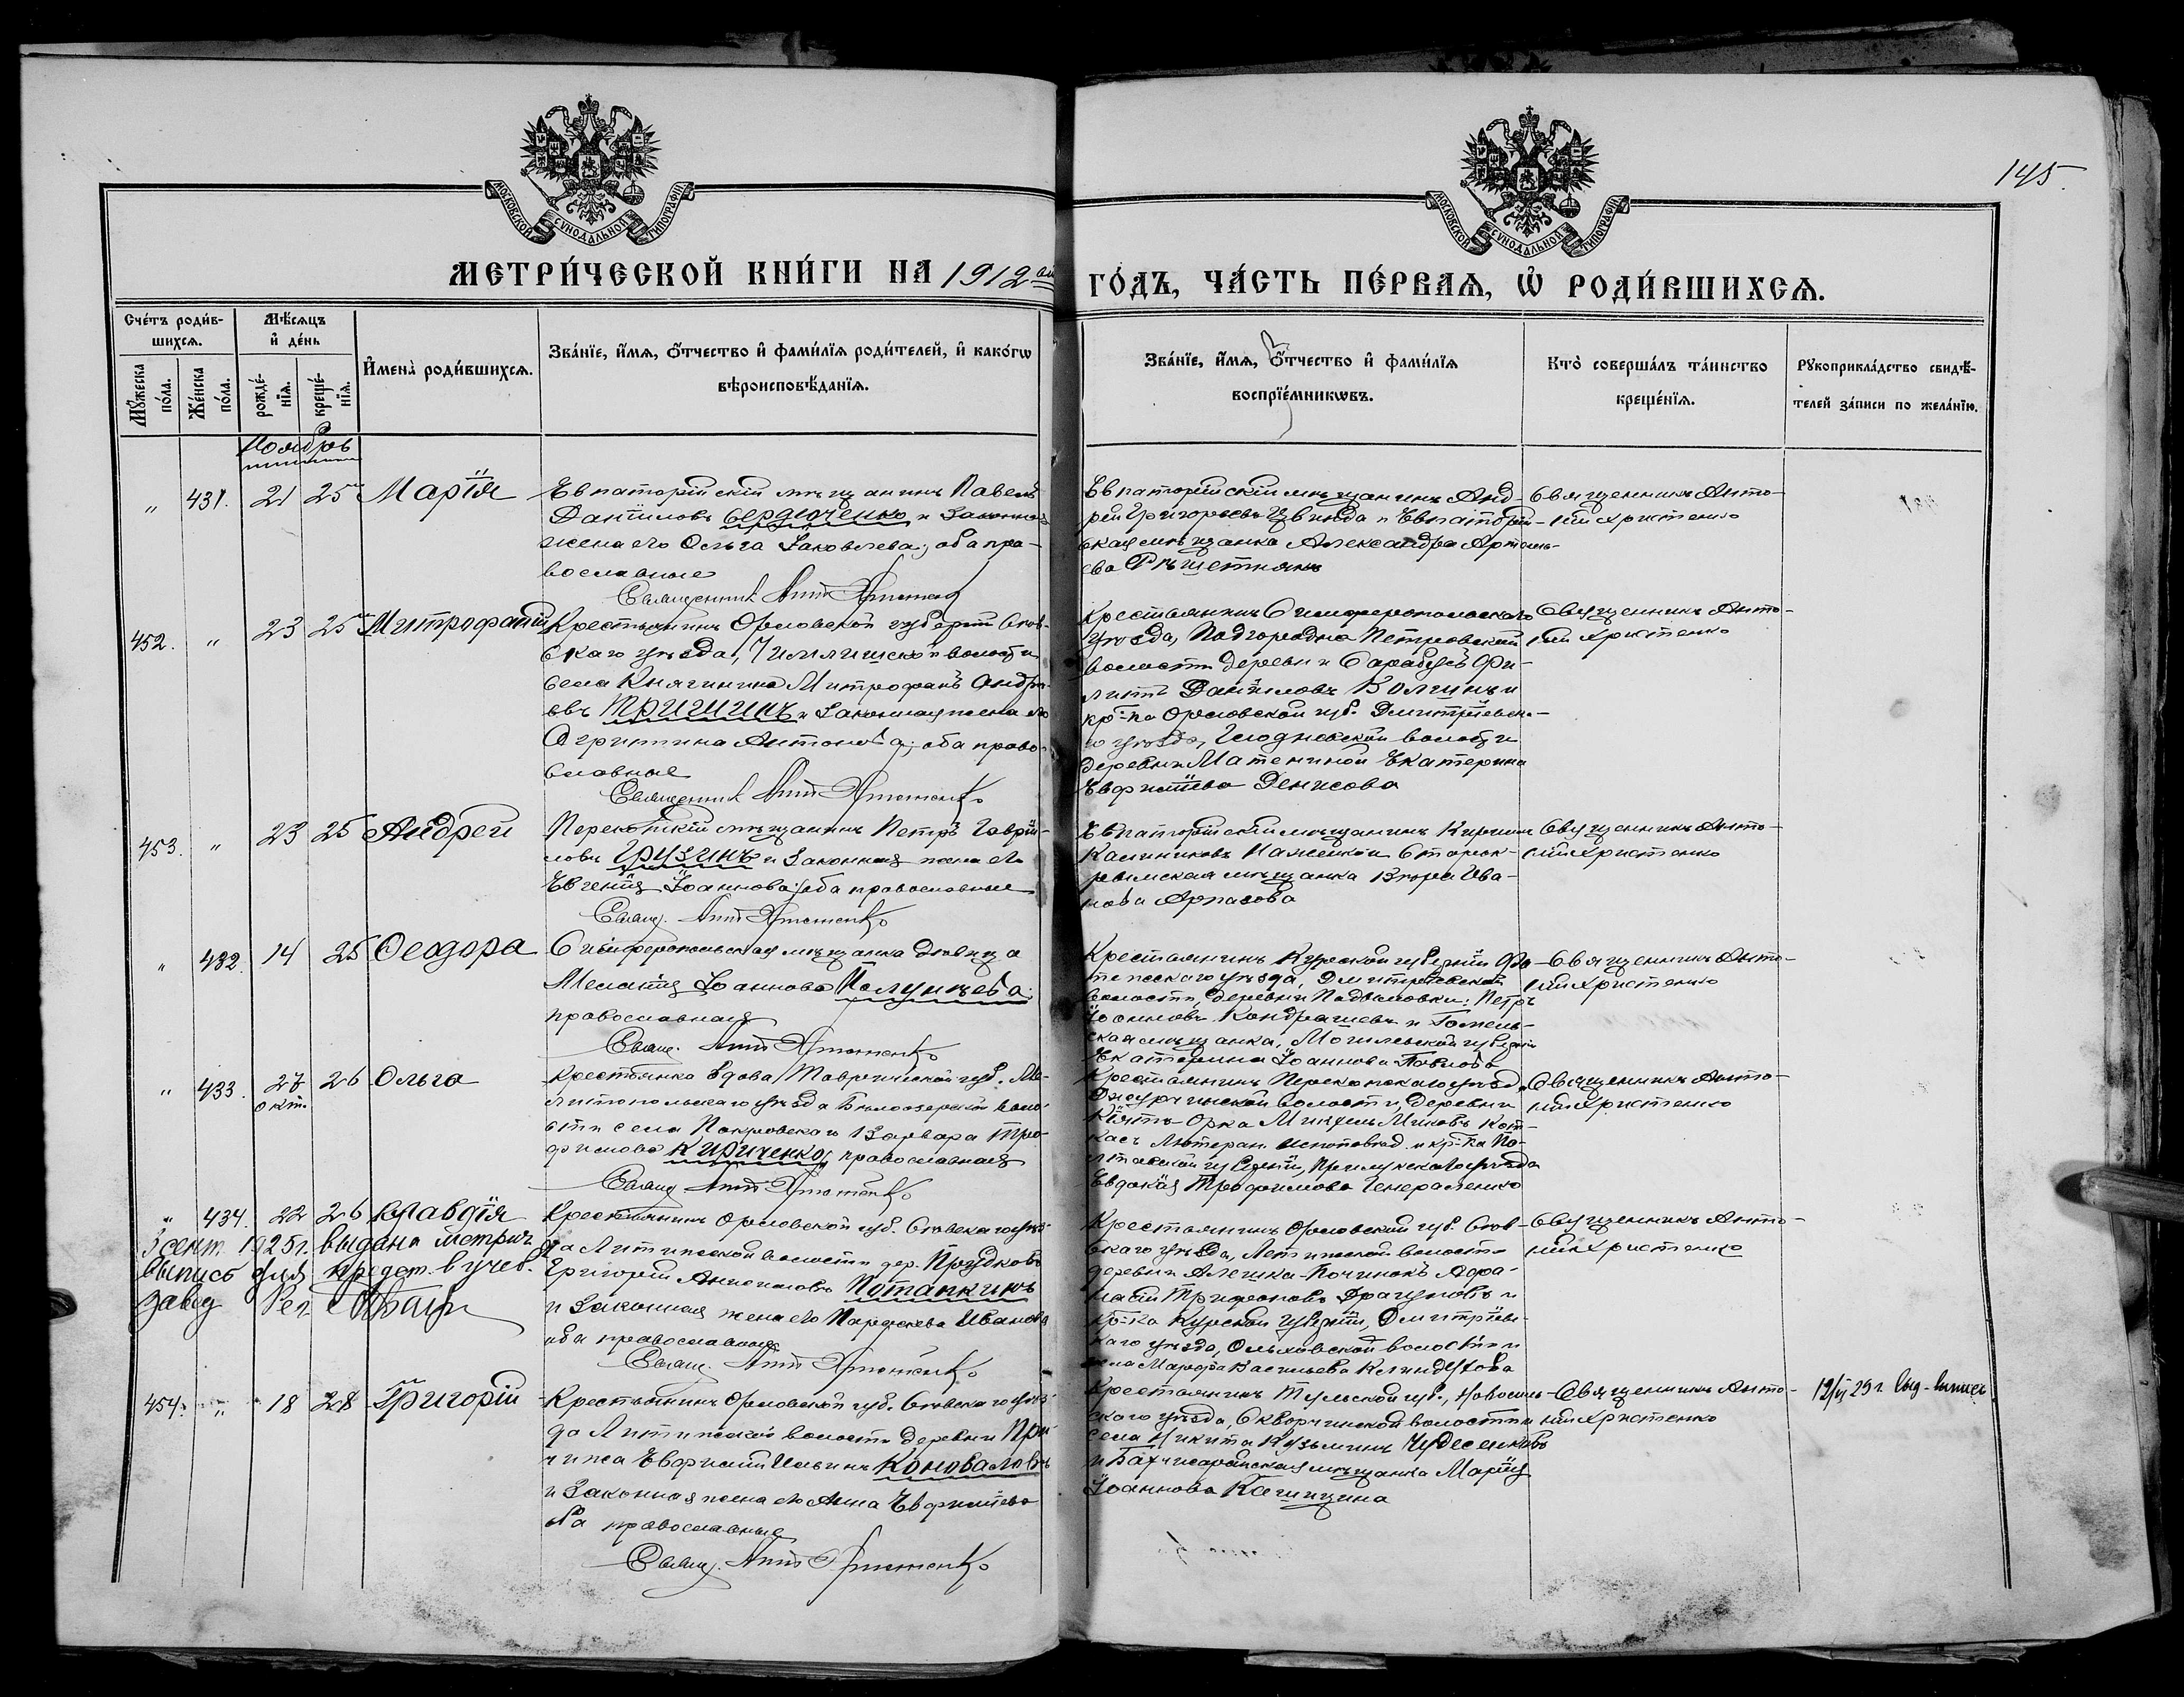 145.
МОСКОВСКОЙ СѴНОДАЛЬНОЙ ТИПОГРАФІИ
МОСКОВСКОЙ СѴНОДАЛЬНОЙ ТИПОГРАФІИ
МЕТРИ́ЧЕСКОЙ КНИ́ГИ НА 1912 ГО́ДЪ, ЧА́СТЬ ПЕ́РВАЯ, Ѡ҆ РОДИ́ВШИХСЯ.
Сче́тъ роди́в-
шихся.
Мꙋ́жеска по́ла.
Же́нска по́ла.
Мѣ́сяцъ и҆ де́нь
рожде́-нїя.
креще́-нїя.
И҆мена̀ роди́вшихся.
Зва́нїе, и҆́мя, ѻ҆́тчество и҆ фами́лїя роди́телей, и҆ како́гѡ
вѣроисповѣ́данїя.
Зва́нїе, и҆́мя, ѻ҆́тчество и҆ фами́лїя
воспрїе́мникѡвъ.
Кто̀ соверша́лъ та́инство
креще́нїя.
Рꙋкоприкла́дство свидѣ́-
телей за́писи по жела́нїю.
Ноябрь
" 431. 21 25 Марія
Евпаторійскій мѣщанинъ Павелъ
Даніиловъ Сердюченко и законная
жена его Ольга Іаковлева, оба пра-
вославные
Священник Ант. Христенко
Евпаторійскій мѣщанинъ Анд-
рей Григорьевъ и Евпаторій-
ская мѣщанка Александра Артемь-
ева Рѣшетнякъ
Священникъ Анто-
ній Христенко
452. " 23 25 Митрофанъ
Крестьянинъ Орловской губерніи Сѣв-
скаго уѣзда, волости
села Княгинина Митрофанъ Андре-
евъ Тришинъ и законная жена его
Агриппина Антонова, оба право-
славные
Священник Ант. Христенко
Крестьянинъ Симферопольскаго
уѣзда, Подгородна Петровской
волости деревни Сарабузъ Фи-
липпъ Даніиловъ Волинъ и
кр-ка Орловской губ. Дмитріевска-
го уѣзда, волости
деревни Екатерина
Евфиміева Денисова
Священникъ Анто-
ній Христенко
453. " 23 25 Андрей
Перекопскій мѣщанинъ Петръ Гаврій-
ловъ Грузинъ и законная жена его
Евгенія Іоаннова, оба православные
Свящ. Ант. Христенко
Евпаторійскій мѣщанинъ Кириллъ
Калинниковъ и Старок-
рымская мѣщанка Вѣра Ива-
нова
Священникъ Анто-
ній Христенко
" 432. 14 25 Ѳеодора
Симферопольская мѣщанка дѣвица
Меланія Іоаннова Полунцева
православная
Свящ. Ант. Христенко
Крестьянинъ Курской губерніи Фа-
тежскаго уѣзда, Дмитріевской
волости, деревни Петръ
Іоанновъ Кондрашевъ и Гомель-
ская мѣщанка, Могилевской губерніи
Екатерина Іоаннова Павлова
Священникъ Анто-
ній Христенко
" 433. 27 окт. 26 Ольга
Крестьянка вдова Таврической губ. Ме-
литопольскаго уѣзда Бѣлозерской воло-
сти села Покровскаго Варвара Тро-
фимова Кириченко, православная
Свящ. Ант. Христенко
Крестьянинъ Перекопскаго уѣзда
Джурчинской волости, деревни
Кіятъ-Орка
Лютеран. исповѣд. и кр-ка По-
лтавской губерніи, Прилукскаго уѣзда
Евдокія Трофимова Генераленко
Священникъ Анто-
ній Христенко
" 434. 22 26 Клавдія
3 сент. 1925 г. выдана метрич.
выпись для предст. в учеб.
завед
Крестьянинъ Орловской губ. Сѣвскаго уѣз-
да волости дер. Прудково
Григорій Потапкинъ
и законная жена его Параскева Иванова
оба православные
Свящ. Ант. Христенко
Крестьянинъ Орловской губ. Сѣв-
скаго уѣзда, волости
деревни Алешка-Починокъ Афа-
насій Трифоновъ Драгуновъ и
кр-ка Курской губерніи, Дмитріев-
скаго уѣзда, волости
села Марфа Васильева
Священникъ Анто-
ній Христенко
454. " 18 28 Григорій
Крестьянинъ Орловской губ. Сѣвскаго уѣз-
да волости деревни
Евфимій Ильинъ Коноваловъ
и законная жена его Анна Евфиміева
оба православные
Свящ. Ант. Христенко
Крестьянинъ Тульской губ., Новосиль-
скаго уѣзда, Скворчинской волости и
села Никита Кузьминъ Чудесенковъ
и Бахчисарайская мѣщанка Марія
Іоаннова Кашицина
Священникъ Анто-
ній Христенко
29 г. выд. выпись